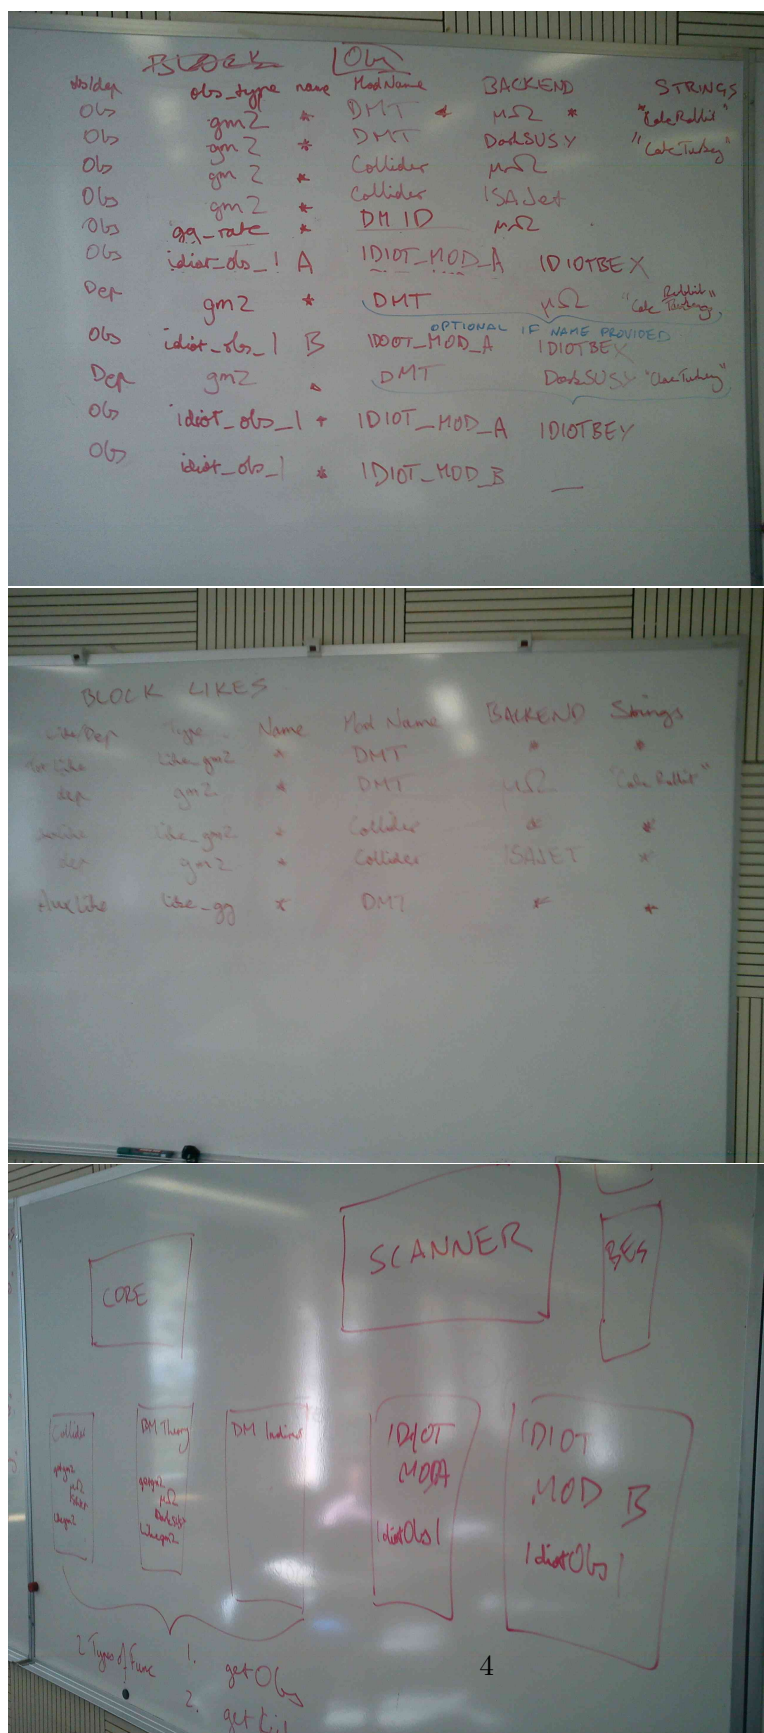 BLOCK Obs
obs/dep obs_type name ModName BACKEND STRINGS
Obs gm2 * DMT * μΩ * "CalcRabbit"
Obs gm2 * DMT DarkSUSY "CalcTurkey"
Obs gm2 * Collider μΩ
Obs gm2 * Collider ISAJet
Obs gg_rate * DM ID μΩ
Obs idiot_obs_1 A IDIOT_MOD_A IDIOTBEX
Dep gm2 * DMT μΩ "Calc Rabbit"
OPTIONAL IF NAME PROVIDED
Obs idiot_obs_1 B IDIOT_MOD_A IDIOTBEX
Dep gm2 DMT DarkSUSY "CalcTurkey"
Obs idiot_obs_1 * IDIOT_MOD_A IDIOTBEY
Obs idiot_obs_1 * IDIOT_MOD_B —
BLOCK LIKES
Like/Dep Type Name Mod Name BACKEND Strings
Like like_gm2 * DMT * *
dep gm2 * DMT μΩ "Calc Rabbit"
like_gm2 * Collider * *
dep gm2 * Collider ISAJET *
AuxLike like_gg * DMT * *
CORE
SCANNER
BES
Collider
gm2
μΩ
likegm2
DM Theory
gm2
μΩ
DarkSUSY
likegm2
DM Indirect
IDIOT
MOD A
IdiotObs1
IDIOT
MOD B
IdiotObs1
2 Types of Func
1. get Obs
2. get
4